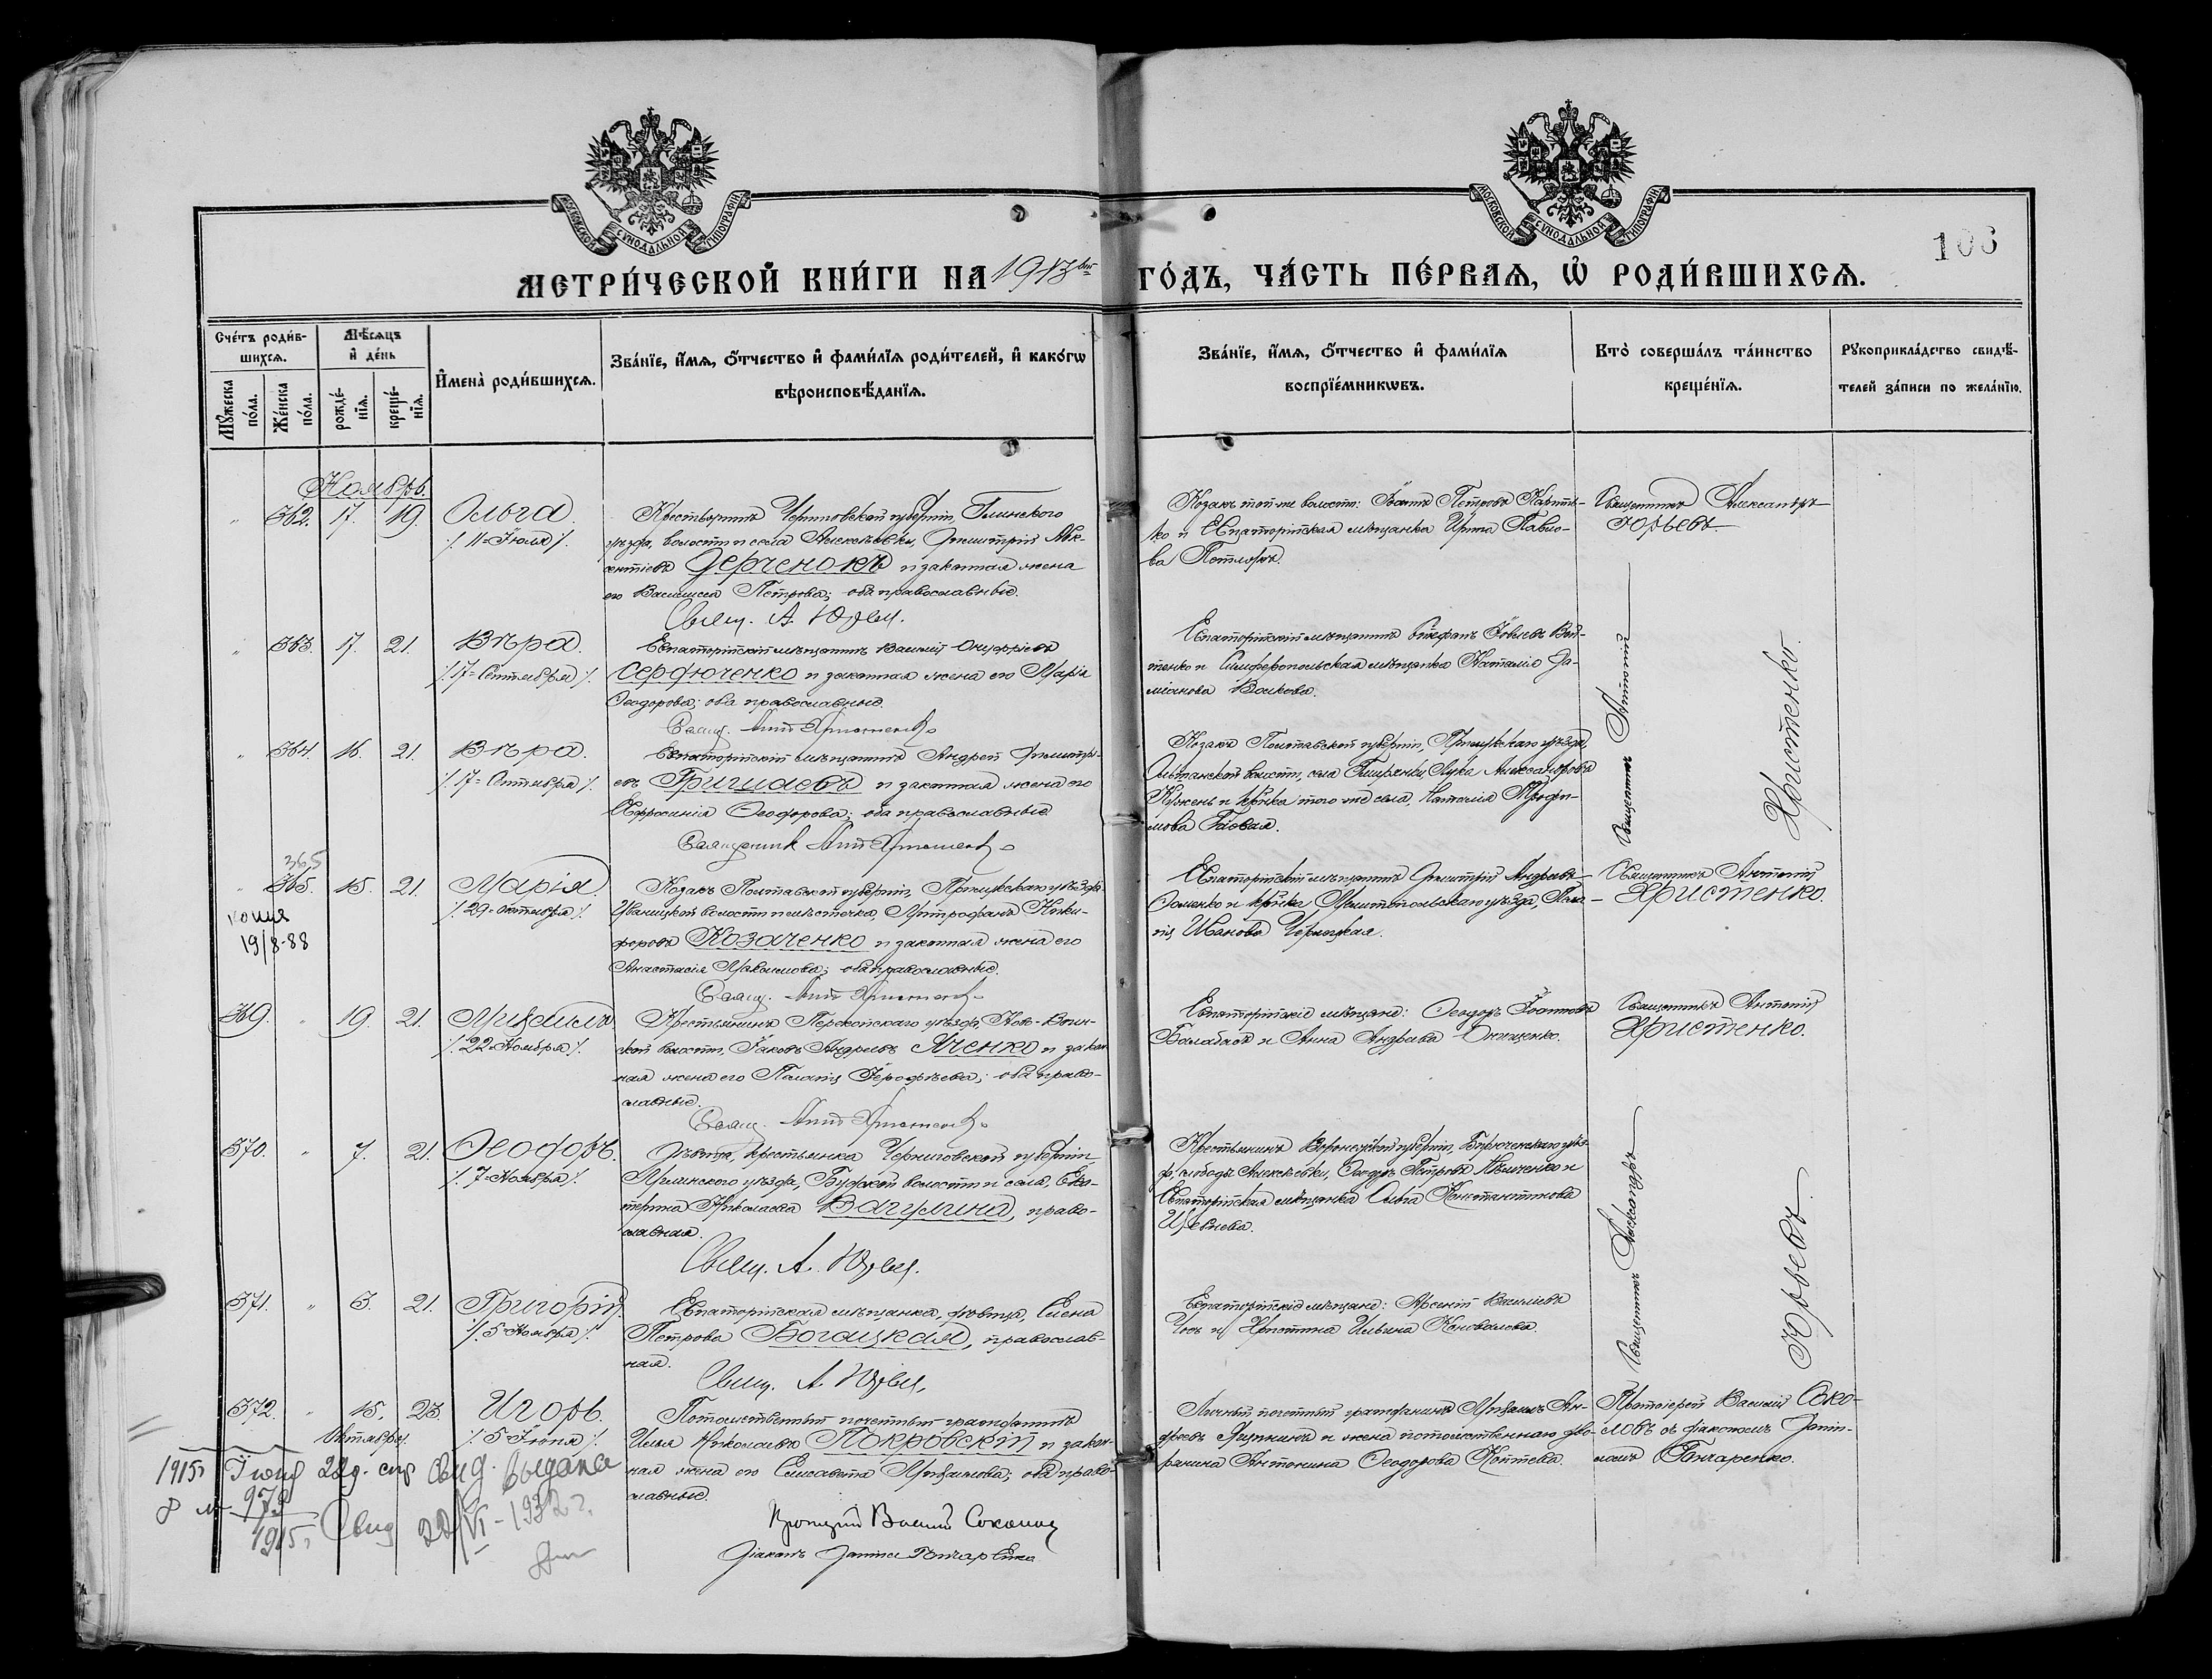 МОСКОВСКОЙ СѴНОДАЛЬНОЙ ТИПОГРАФІИ
МОСКОВСКОЙ СѴНОДАЛЬНОЙ ТИПОГРАФІИ
106
МЕТРИ́ЧЕСКОЙ КНИ́ГИ НА 1913 ГО́ДЪ, ЧА́СТЬ ПЕ́РВАѦ, Ѡ҆ РОДИ́ВШИХСѦ.
Сче́тъ роди́в-
шихсѧ.
Мѣ́сѧцъ
и҆ де́нь
Мꙋ́жеска по́ла.
Же́нска по́ла.
рожде́-нїѧ.
креще́-нїѧ.
И҆мена̀ роди́вшихсѧ.
Зва́нїе, и҆́мѧ, ѻ҆́тчество и҆ фами́лїѧ роди́телей, и҆ како́гѡ
вѣроисповѣ́данїѧ.
Зва́нїе, и҆́мѧ, ѻ҆́тчество и҆ фами́лїѧ
воспрїе́мникѡвъ.
Кто̀ соверша́лъ та́инство
креще́нїѧ.
Рꙋкоприкла́дство свидѣ́-
телей за́писи по жела́нїю.
Ноябрь.
" 362. 17. 19. Ольга.
/. 11=Іюля /.
Крестьянинъ Черниговской губерніи, Глинского
уѣзда, волости и села Алексѣевки, Димитрій Авк-
сентіевъ Дерченокъ и законная жена
его Василиса Петрова; оба православные.
Свящ. А. Юрьев.
Козакъ той-же волости: Іоаннъ Петровъ Карпен-
ко и Евпаторійская мѣщанка Ирина Павло-
ва
Священникъ Александръ
Юрьевъ
" 363. 17. 21. Вѣра.
/. 17=Сентября /.
Евпаторійскій мѣщанинъ Василій Онуфріевъ
Сердюченко и законная жена его Марія
Ѳеодорова; оба православные.
Свящ. Ант Христенко
Евпаторійскій мѣщанинъ Стефанъ Іовлевъ Вой-
тенко и Симферопольская мѣщанка Наталія Да-
міанова Волкова.
Священникъ Антоній
Христенко.
" 364. 16. 21. Вѣра.
/. 17=Сентября /.
Евпаторійскій мѣщанинъ Андрей Димитрі-
евъ Григилаевъ и законная жена его
Евфросинія Ѳеодорова; оба православные.
Священник Ант Христенко
Козакъ Полтавской губерніи, Прилукскаго уѣзда,
волости, села Лука Александровъ
и кр-нка того-же села, Наталія Трофи-
мова
365
" 365. 15. 21. Марія.
/. 29=Октября /.
копия
19/8-88
Козакъ Полтавской губерніи, Прилукскаго уѣзда
Иваницкой волости и мѣстечка, Митрофанъ Ники-
форовъ Козаченко и законная жена его
Анастасія Максимова; оба православные.
Свящ. Ант Христенко
Евпаторійскій мѣщанинъ Димитрій Андреевъ
Ѳоменко и кр-нка Мелитопольскаго уѣзда, Пела-
гія Иванова Черницкая.
Священникъ Антоній
Христенко.
369. " 19. 21. Михаилъ
/. 22=Ноября /.
Крестьянинъ Перекопскаго уѣзда, Ново-
ской волости, Іаковъ Андреевъ Яченко и закон-
ная жена его Пелагія Іероѳѣева; оба право-
славные.
Свящ. Ант Христенко
Евпаторійскіе мѣщане: Ѳеодоръ Іоанновъ
Балабасъ и Анна Андреева Онищенко.
Священникъ Антоній
Христенко.
370. " 7. 21. Ѳеодоръ.
/. 7=Ноября /.
Дѣвица, крестьянка Черниговской губерніи
Мглинского уѣзда, волости и села, Ека-
терина Николаева Вагулина, право-
славная.
Свящ. А. Юрьев.
Крестьянинъ Воронежской губерніи, Бирюченскаго уѣз-
да, слободы Алексѣевки, Ѳеодоръ Петровъ и
Евпаторійская мѣщанка Ольга Константинова
Священникъ Александръ
Юрьевъ.
371. " 5. 21. Григорій.
/. 5=Ноября /.
Евпаторійская мѣщанка, дѣвица, Елена
Петрова Богацкая, православ-
ная.
Свящ. А. Юрьев.
Евпаторійскіе мѣщане: Арсеній Василіевъ
Усъ и Христина Ильина Коновалова.
372. " 15. 23. Игорь.
Октября. /. 5=Іюня /.
Потомственный почетный гражданинъ
Илья Николаевъ Покровскій и закон-
ная жена его Елисавета Михаилова; оба право-
славные.
Протоіерей Василій Соколов
Діаконъ Даніилъ Гончаренко
Личный почетный гражданинъ Михаилъ Ан-
дреевъ и жена потомственнаго дво-
рянина Антонина Ѳеодорова Коптева.
Протоіерей Василій Соко-
ловъ съ діакономъ Даніи-
ломъ Гончаренко.
1915 Іюня 22 д. свид. выдана
№ 973
1915 г. Свид 22/VI-1932 г.